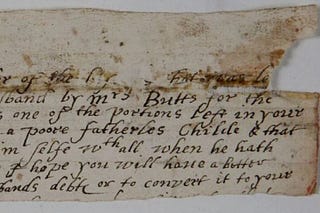 of the
band by mrs Butts for the
s one of the portions left in your
a poore fatherles Childe & that
im selfe wth all when he hath
I hope you will have a better
bands debte or to convert it to your